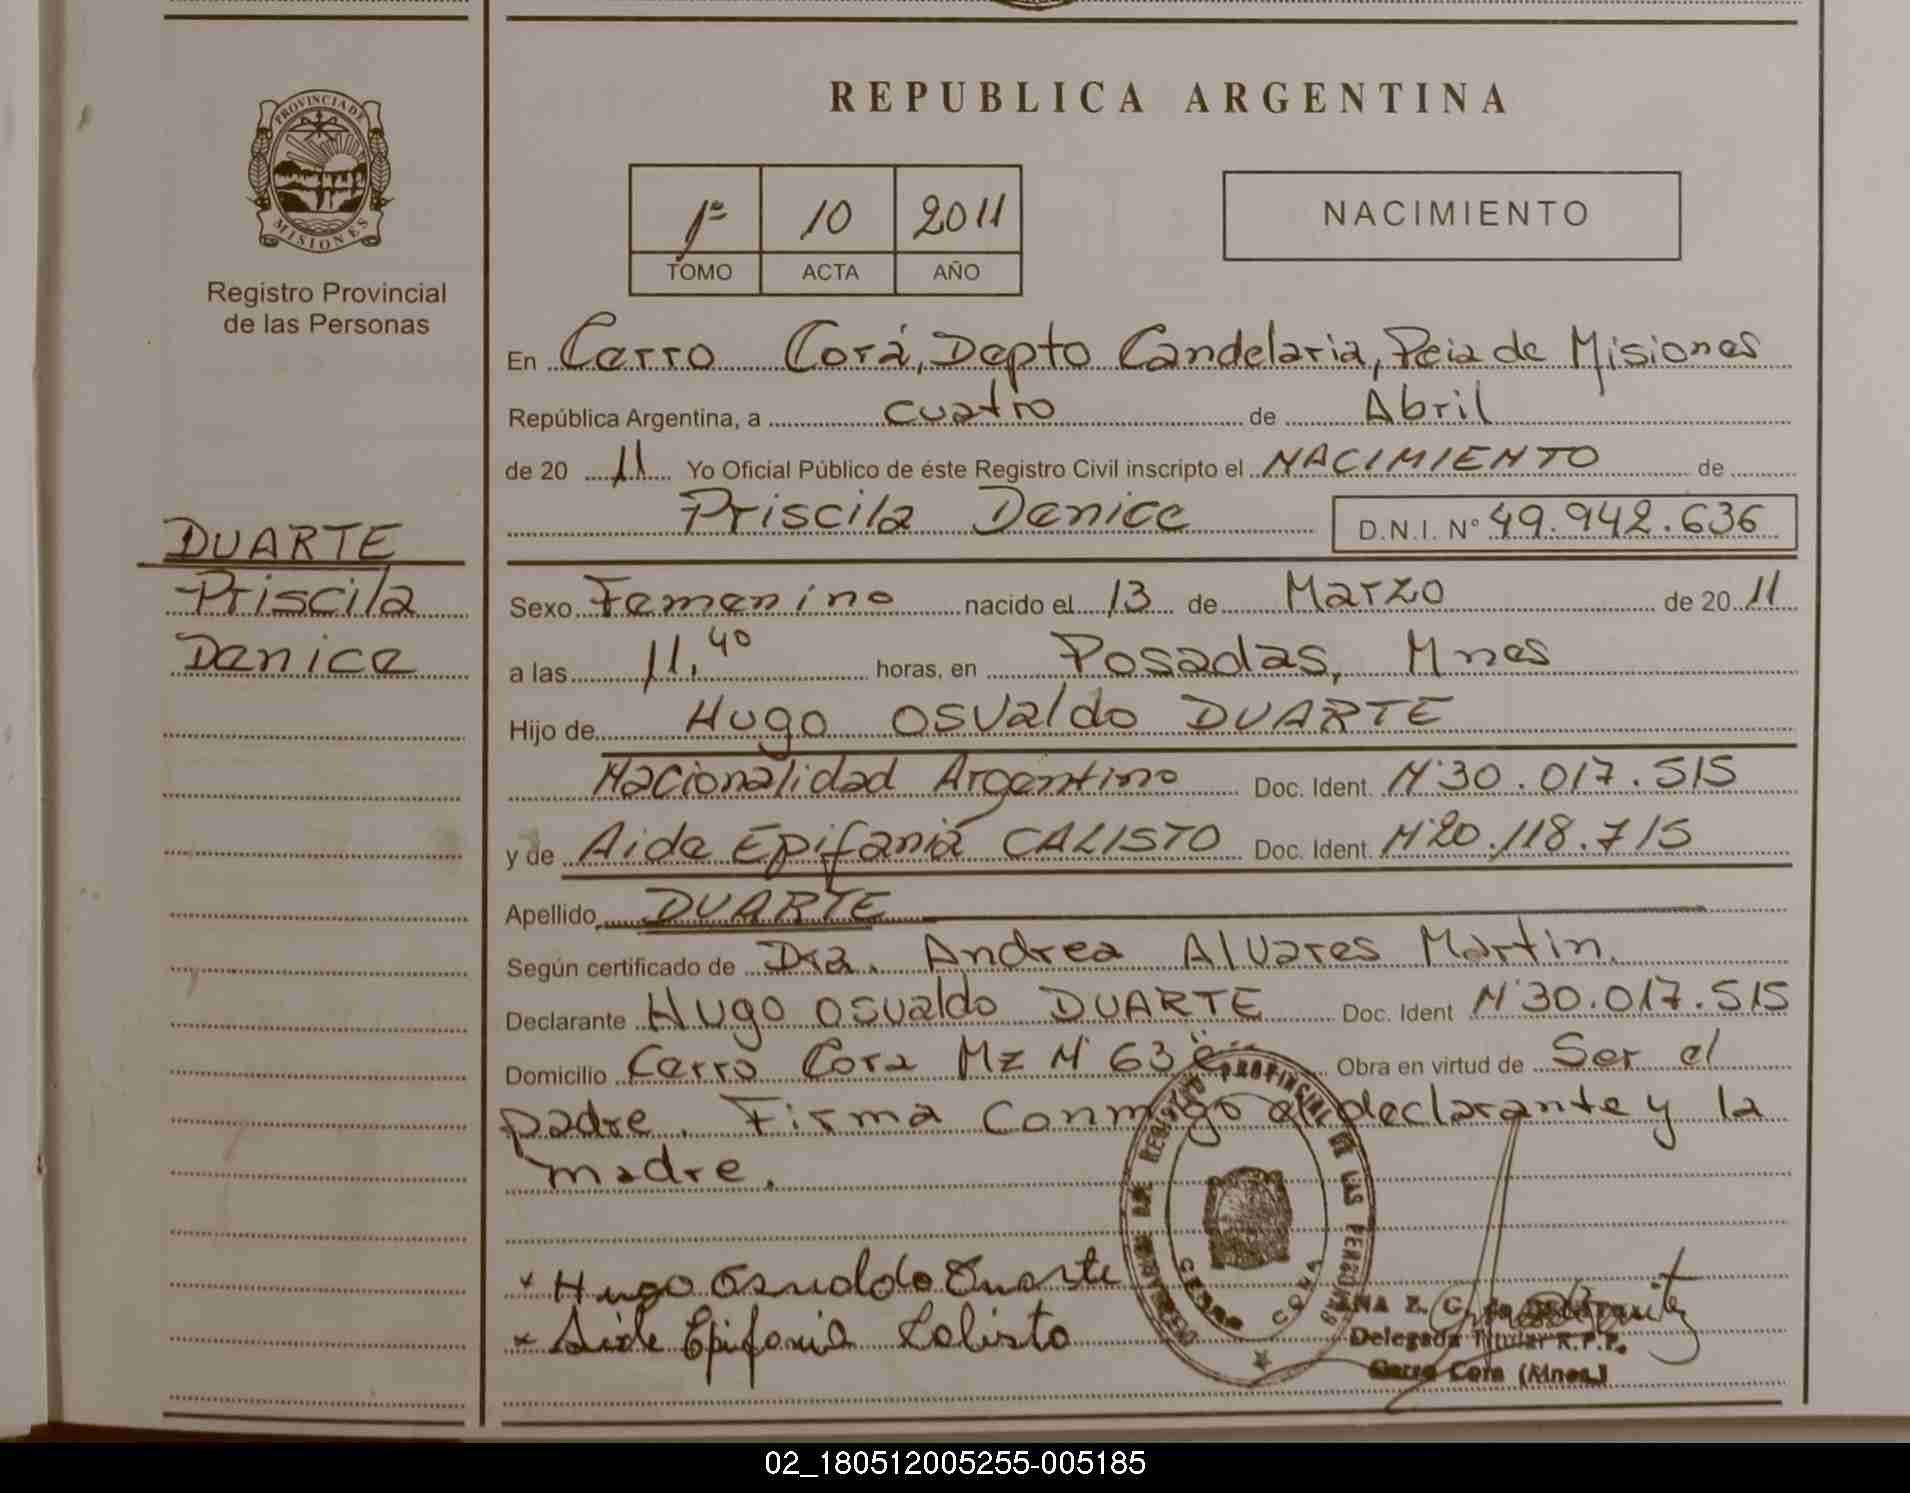 REPUBLICA ARGENTINA
PROVINCIA DE MISIONES
Registro Provincial
de las Personas
1º 10 2011
TOMO ACTA AÑO
NACIMIENTO
En Cerro Corá, Depto Candelaria, Pcia de Misiones
República Argentina, a cuatro de Abril
de 20 11 Yo Oficial Público de éste Registro Civil inscripto el NACIMIENTO de
Priscila Denice D.N.I. N° 49.942.636
DUARTE
Priscila
Denice
Sexo Femenino nacido el 13 de Marzo de 20 11
a las 11,40 horas, en Posadas, Mnes
Hijo de Hugo Osvaldo DUARTE
Nacionalidad Argentino Doc. Ident. N°30.017.515
y de Aide Epifania CALISTO Doc. Ident. N°20.118.715
Apellido DUARTE
Según certificado de Dra. Andrea Alvares Martin.
Declarante Hugo Osvaldo DUARTE Doc. Ident N°30.017.515
Domicilio Cerro Cora Mz N° 63 Obra en virtud de Ser el
padre. Firma Conmigo el declarante y la
madre.
Hugo Osvaldo Duarte
Aide Epifania Calisto
REGISTRO PROVINCIAL DE LAS PERSONAS
CERRO CORA
ANA Z. C. de
Delegada Titular R.P.P.
Cerro Cora (Mnes.)
02_180512005255-005185